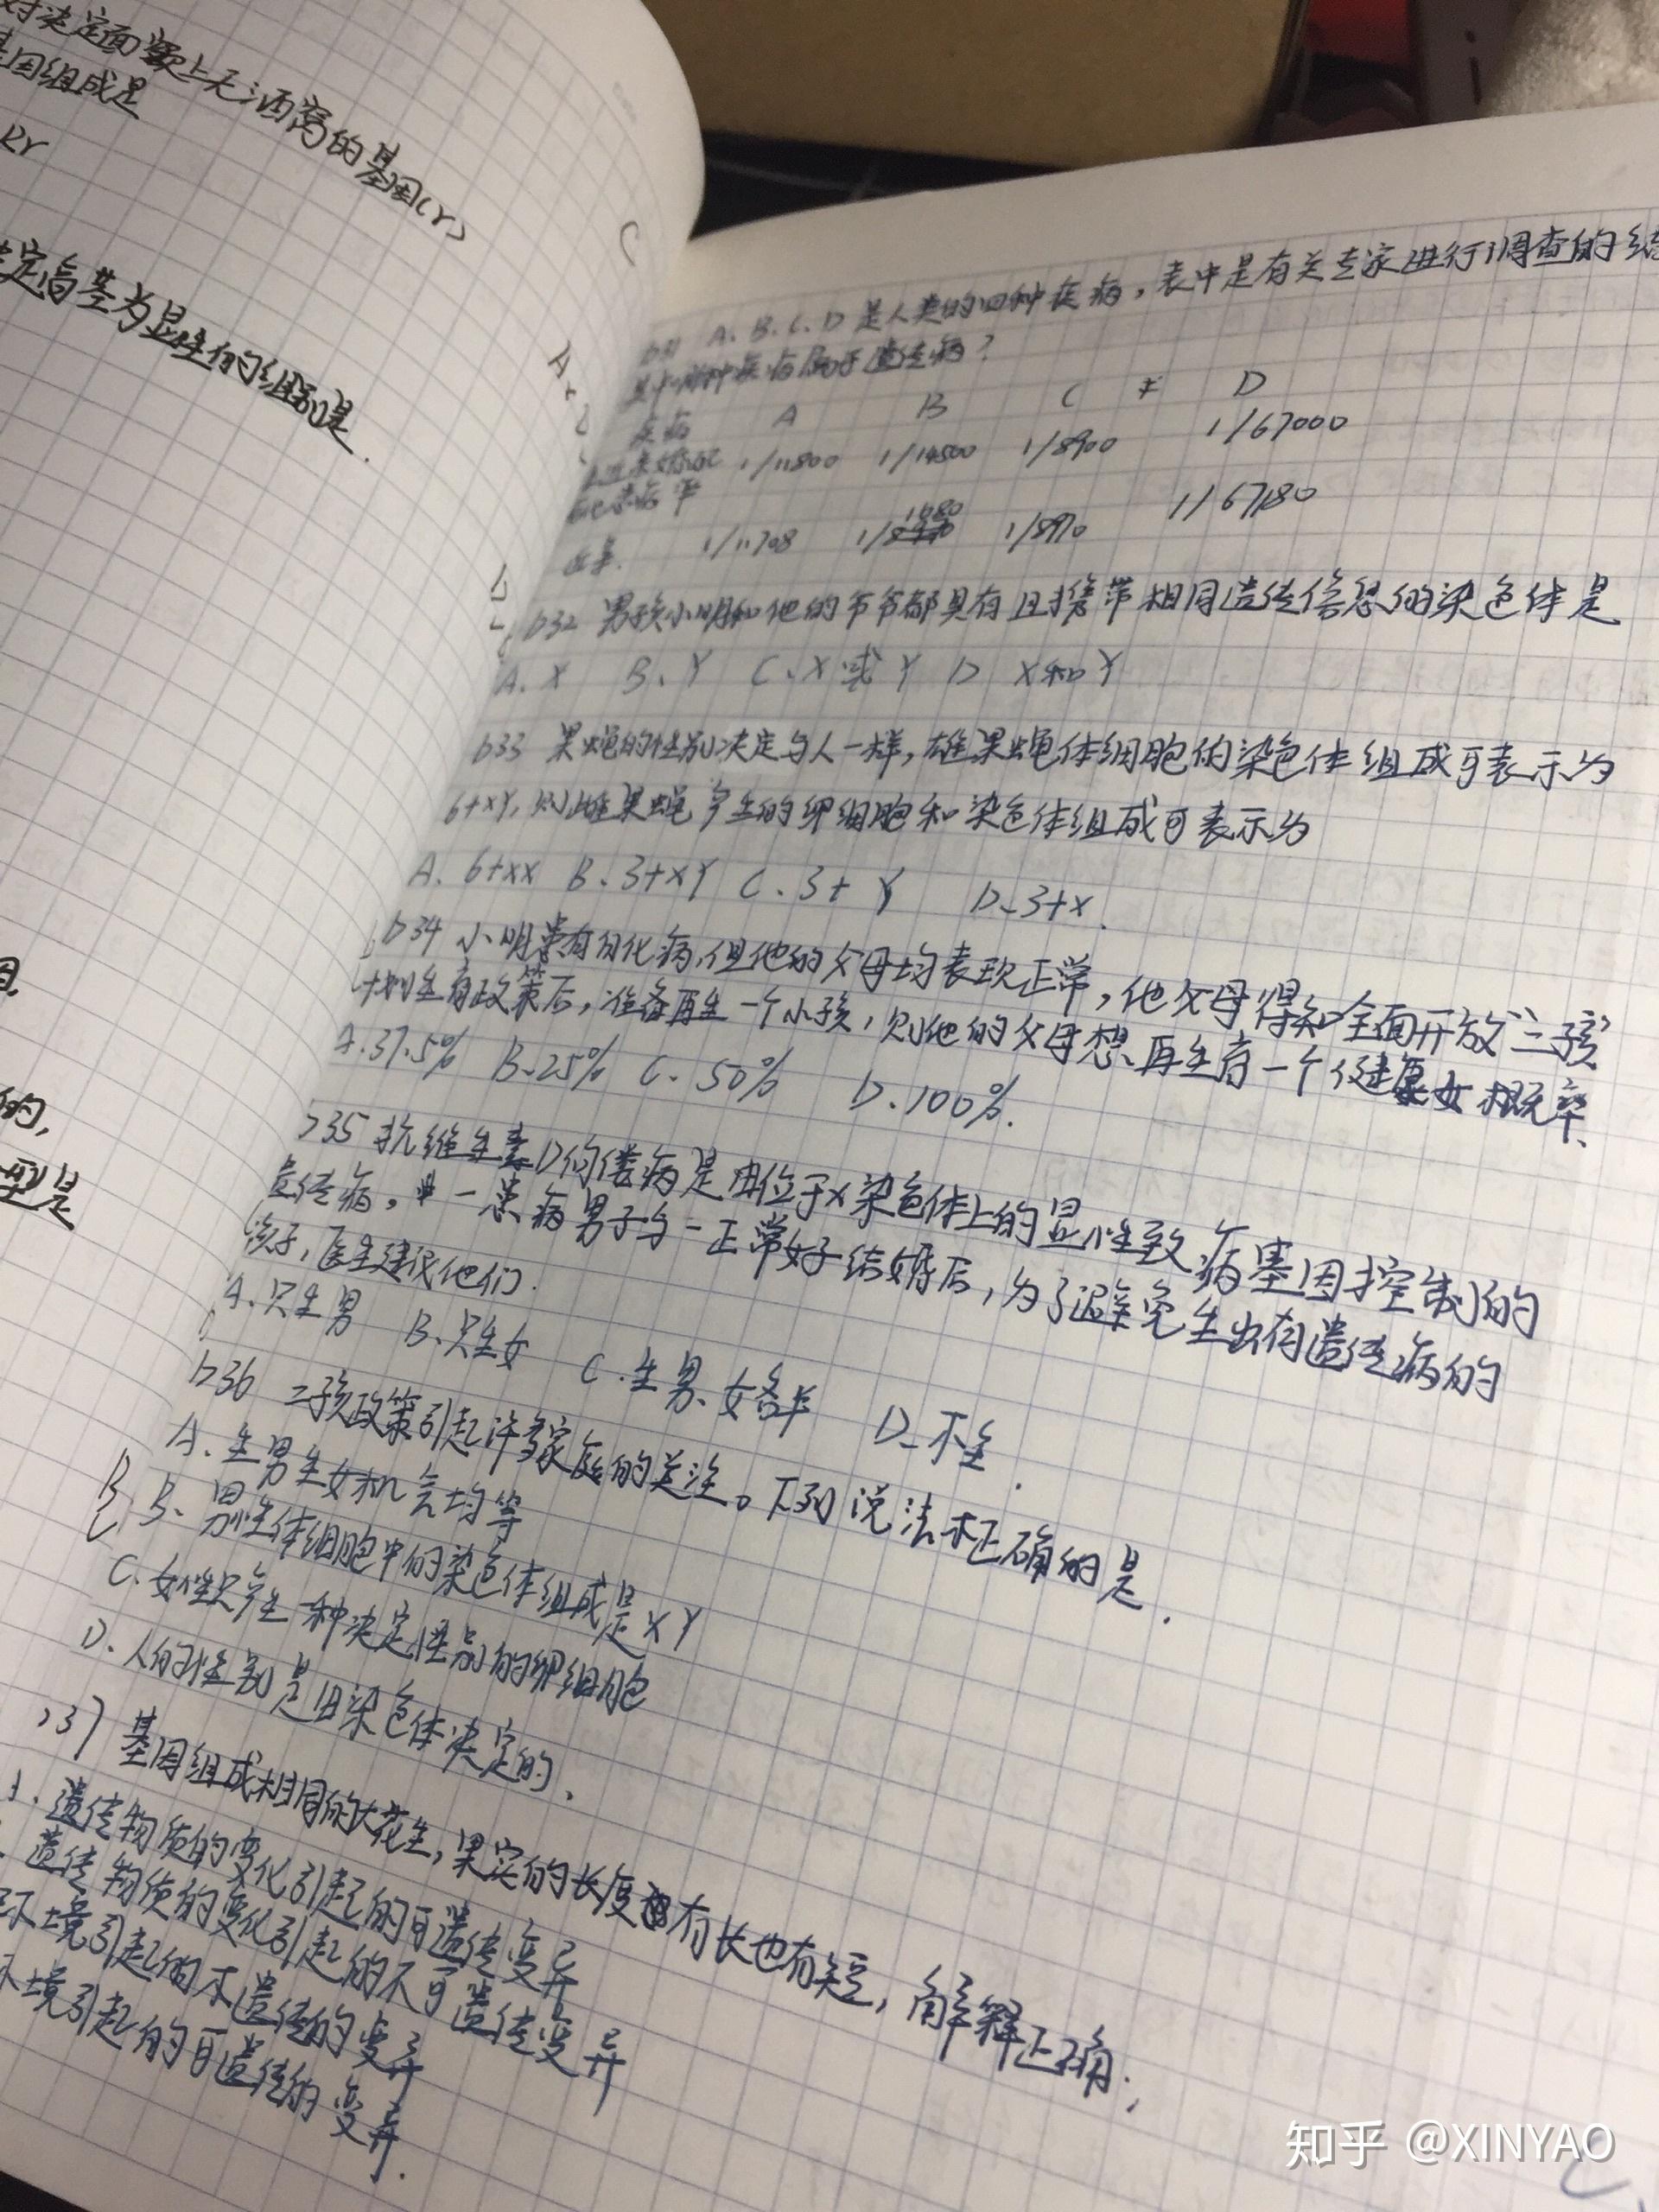 对决定面颊上无酒窝的基因(r)
基因组成是
Rr
定高茎为显性的组别是.
的,
型是
C
A
631 A.B.C.D是人类的四种疾病,表中是有关专家进行调查的结
其中哪种疾病属于遗传病?
疾病 A B C D
1/11800 1/14500 1/8900 1/67000
后代患病率
1/11708 1/1680 1/8970 1/67180
632 男孩小明和他的爷爷都具有且携带相同遗传信息的染色体是
A. X B、Y C、X或Y D X和Y
633 果蝇的性别决定与人一样,雄果蝇体细胞的染色体组成可表示为
6+XY,则雌果蝇产生的卵细胞和染色体组成可表示为
A. 6+xx B、3+XY C、3+Y D、3+x.
634 小明患有白化病,但他的父母均表现正常,他父母得知全面开放"三孩"
计划生育政策后,准备再生一个小孩,则他的父母想再生育一个健康女概率、
A.37.5% B、25% C、50% D、100%.
635 抗维生素D佝偻病是由位于X染色体上的显性致病基因控制的
遗传病,一患病男子与一正常女子结婚后,为了避免生出有遗传病的
孩子,医生建议他们.
A.只生男 B、只生女 C.生男、女各半 D、不生.
636 二孩政策引起许多家庭的关注。下列说法不正确的是.
A、生男生女机会均等
B、男性体细胞中的染色体组成是XY
C、女性只产生一种决定性别的卵细胞
D、人的性别是由染色体决定的、
637 基因组成相同的大花生,果实的长度有长也有短,解释正确:
遗传物质的变化引起的可遗传变异
遗传物质的变化引起的不可遗传变异
环境引起的不遗传的变异
环境引起的可遗传的变异.
知乎 @XINYAO